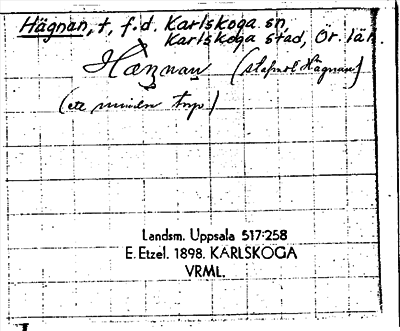 Hägnan, t, f.d. Karlskoga sn,
Karlskoga stad, Ör. län
Hæŋnaŋ (stafvas Hägnan)
(ett mindre torp)
Landsm. Uppsala 517:258
E. Etzel. 1898. KARLSKOGA
VRML.